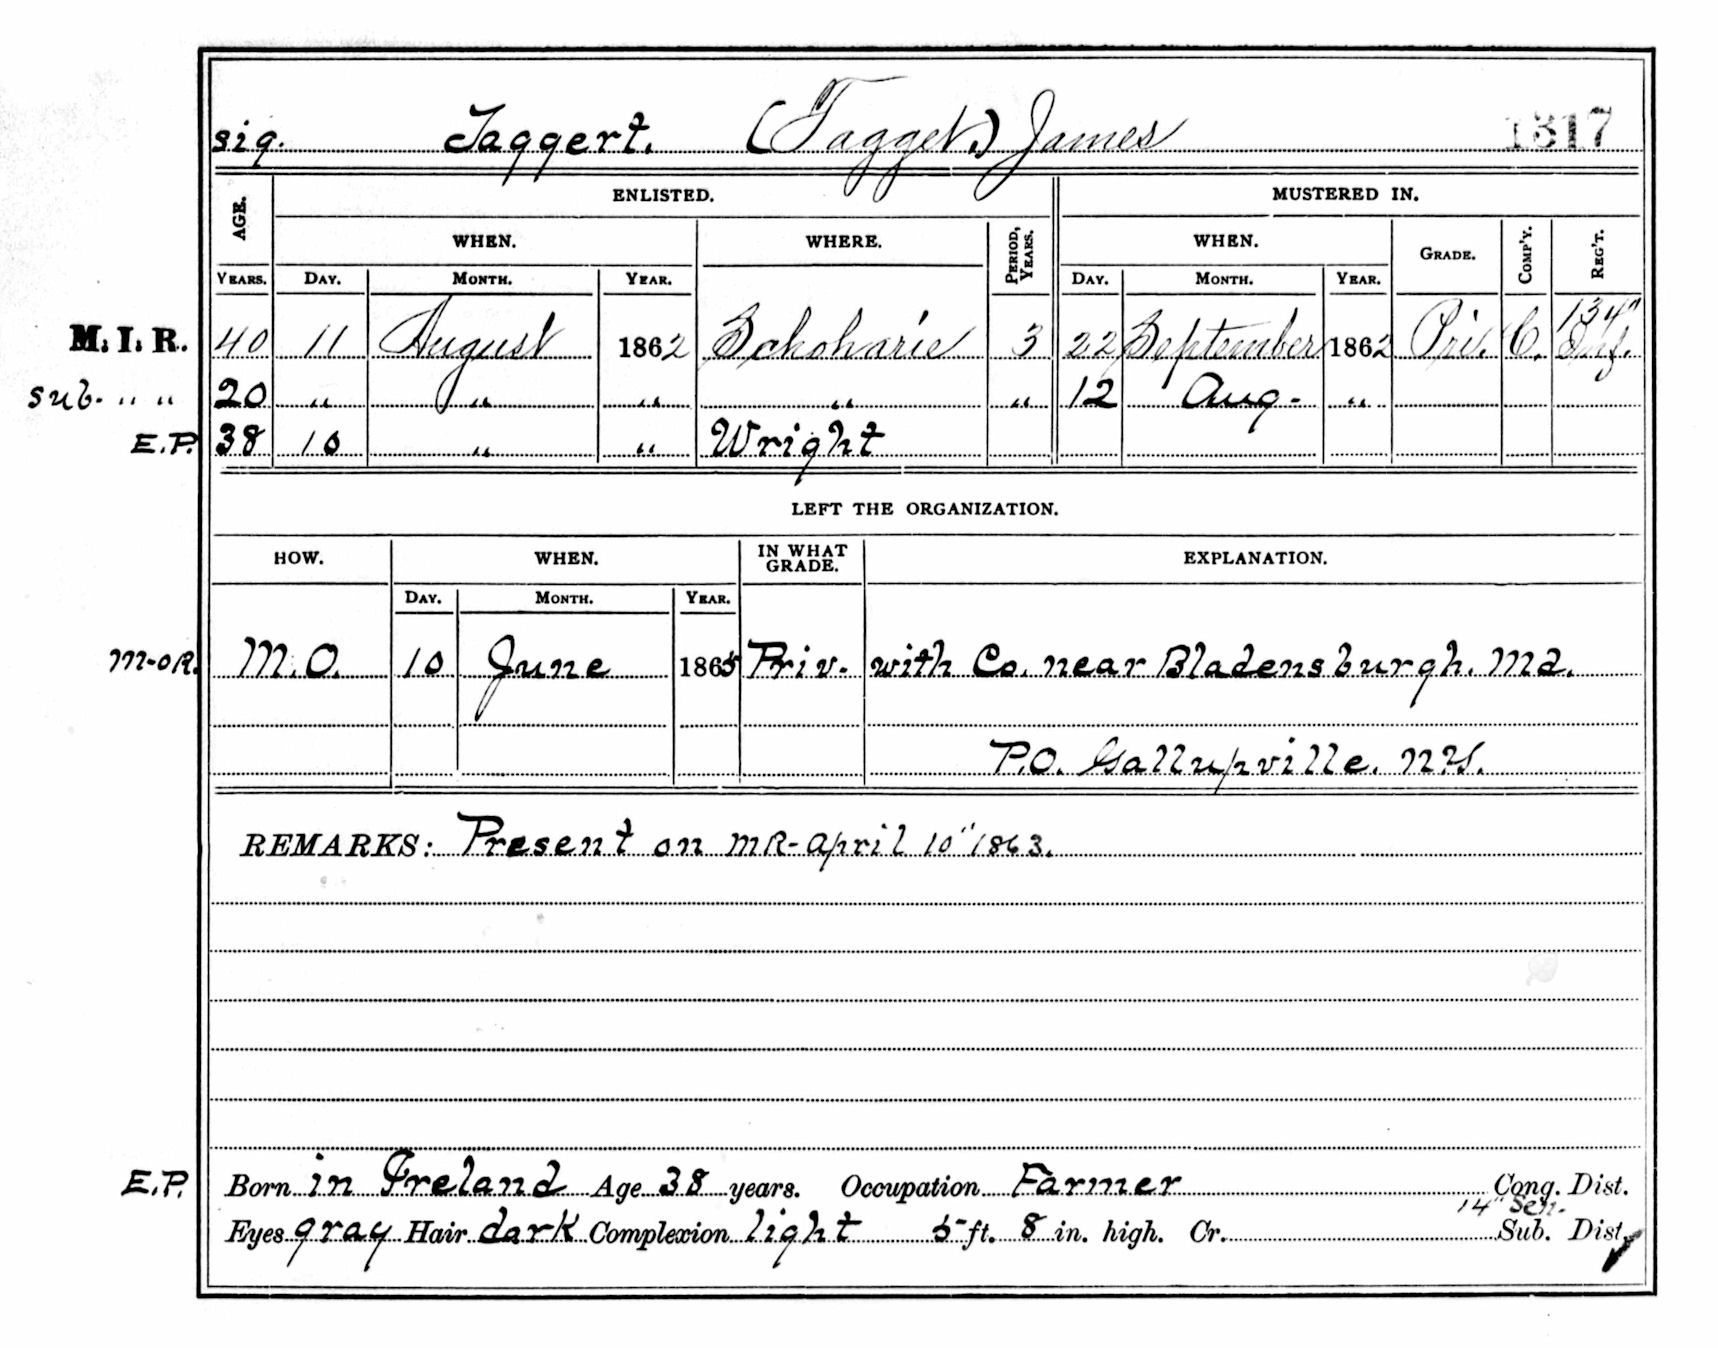 sig. Taggert. (Tagget.) James 1317
AGE. ENLISTED. MUSTERED IN.
WHEN. WHERE. PERIOD, YEARS. WHEN. GRADE. COMP'Y. REG'T.
YEARS. DAY. MONTH. YEAR. DAY. MONTH. YEAR.
M. I. R. 40 11 August 1862 Schoharie 3 22 September 1862 Pri. C. 134" Inf.
sub. " " 20 " " " " " 12 Aug. "
E.P. 38 10 " " Wright
LEFT THE ORGANIZATION.
HOW. WHEN. IN WHAT GRADE. EXPLANATION.
DAY. MONTH. YEAR.
M-OR. M.O. 10 June 1865 Priv. with Co. near Bladensburgh. Md.
P.O. Gallupville. N.Y.
REMARKS: Present on MR-April 10" 1863.
E.P. Born in Ireland Age 38 years. Occupation Farmer Cong. Dist.
14" Sen.
Eyes gray Hair dark Complexion light 5 ft. 8 in. high. Cr. Sub. Dist.